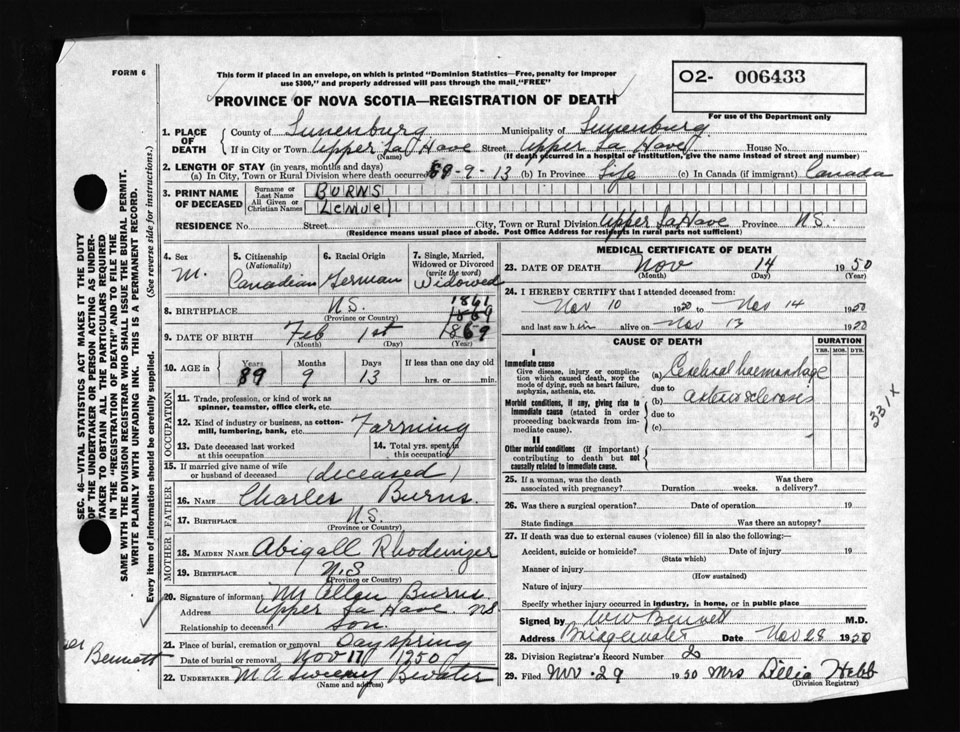 FORM 6
This form if placed in an envelope, on which is printed "Dominion Statistics—Free, penalty for improper
use $300," and properly addressed will pass through the mail "FREE"
O2- 006433
For use of the Department only
PROVINCE OF NOVA SCOTIA—REGISTRATION OF DEATH
1. PLACE OF DEATH
County of Lunenburg Municipality of Lunenburg
If in City or Town Upper La Have Street Upper La Have House No.
(Name) (If death occurred in a hospital or institution, give the name instead of street and number)
2. LENGTH OF STAY (in years, months and days)
(a) In City, Town or Rural Division where death occurred 89-9-13 (b) In Province Life (c) In Canada (if immigrant) Canada
3. PRINT NAME OF DECEASED
Surname or Last Name BURNS
All Given or Christian Names Lemuel
RESIDENCE No. Street City, Town or Rural Division Upper La Have Province N.S.
(Residence means usual place of abode. Post Office Address for residents in rural parts not sufficient)
4. Sex M.
5. Citizenship (Nationality) Canadian
6. Racial Origin German
7. Single, Married, Widowed or Divorced (write the word) Widowed
8. BIRTHPLACE N.S.
(Province or Country)
1861
1869
9. DATE OF BIRTH Feb 1st 1869
(Month) (Day) (Year)
10. AGE in Years 89 Months 9 Days 13 If less than one day old hrs. or min.
OCCUPATION
11. Trade, profession, or kind of work as
spinner, teamster, office clerk, etc.
12. Kind of industry or business, as cotton-
mill, lumbering, bank, etc. Farming
13. Date deceased last worked at this occupation
14. Total yrs. spent in this occupation
15. If married give name of wife
or husband of deceased (deceased)
FATHER
16. NAME Charles Burns.
17. BIRTHPLACE N.S.
(Province or Country)
MOTHER
18. MAIDEN NAME Abigail Rhodenizer
19. BIRTHPLACE N.S
(Province or Country)
20. Signature of informant Mr Allen Burns.
Address Upper La Have. NS
Relationship to deceased Son.
21. Place of burial, cremation or removal Dayspring
Date of burial or removal Nov 17 1950
22. UNDERTAKER M A Sweeny Bwater
(Name and address)
MEDICAL CERTIFICATE OF DEATH
23. DATE OF DEATH Nov 14 1950
(Month) (Day)
24. I HEREBY CERTIFY that I attended deceased from:
Nov 10 1950 to Nov 14 1950
and last saw him alive on Nov 13 1950
CAUSE OF DEATH
DURATION
YRS. MOS. DYS.
I
Immediate cause
Give disease, injury or complica-
tion which caused death, NOT the
mode of dying, such as heart failure,
asphyxia, asthenia, etc.
(a) Cerebral haemorrhage
due to
Morbid conditions, if any, giving rise to
immediate cause (stated in order
proceeding backwards from im-
mediate cause).
(b) arteriosclerosis
due to
(c)
331 X
II
Other morbid conditions (if important)
contributing to death but not
causally related to immediate cause.
25. If a woman, was the death
associated with pregnancy? Duration weeks. Was there a delivery?
26. Was there a surgical operation? Date of operation 19
State findings Was there an autopsy?
27. If death was due to external causes (violence) fill in also the following:—
Accident, suicide or homicide? Date of injury 19
(State which)
Manner of injury
(How sustained)
Nature of injury
Specify whether injury occurred in industry, in home, or in public place
Signed by W W Bennett M.D.
Address Bridgewater Date Nov 28 1950
28. Division Registrar's Record Number
29. Filed Nov. 29 1950 Mrs Lillia Hebb
(Division Registrar)
SEC. 46—VITAL STATISTICS ACT MAKES IT THE DUTY
OF THE UNDERTAKER OR PERSON ACTING AS UNDER-
TAKER TO OBTAIN ALL THE PARTICULARS REQUIRED
IN THE "REGISTRATION OF DEATH" AND TO FILE THE
SAME WITH THE DIVISION REGISTRAR WHO SHALL ISSUE THE BURIAL PERMIT.
WRITE PLAINLY WITH UNFADING INK. THIS IS A PERMANENT RECORD.
Every item of information should be carefully supplied. (See reverse side for instructions.)
Bennett